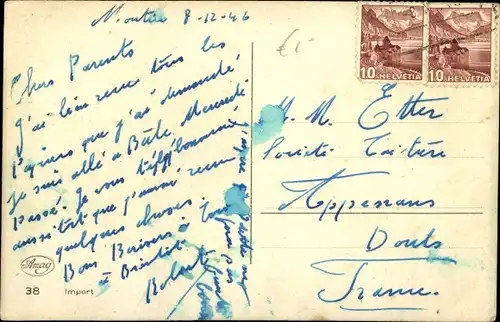 Moutier 8-12-46
Chers Parents
J'ai bien reçu tous les
papiers que j'ai demandé
Je suis allé à Bâle Mercredi
Passé. Je vous téléphonerai
aussitôt que j'aurai reçu
quelques choses
Bons Baisers à tous
à Bientôt
€1-
HELVETIA
10
HELVETIA
10
M. M. Etter
Société Laitière
Appenans
Doubs
France.
Amag
38 Import